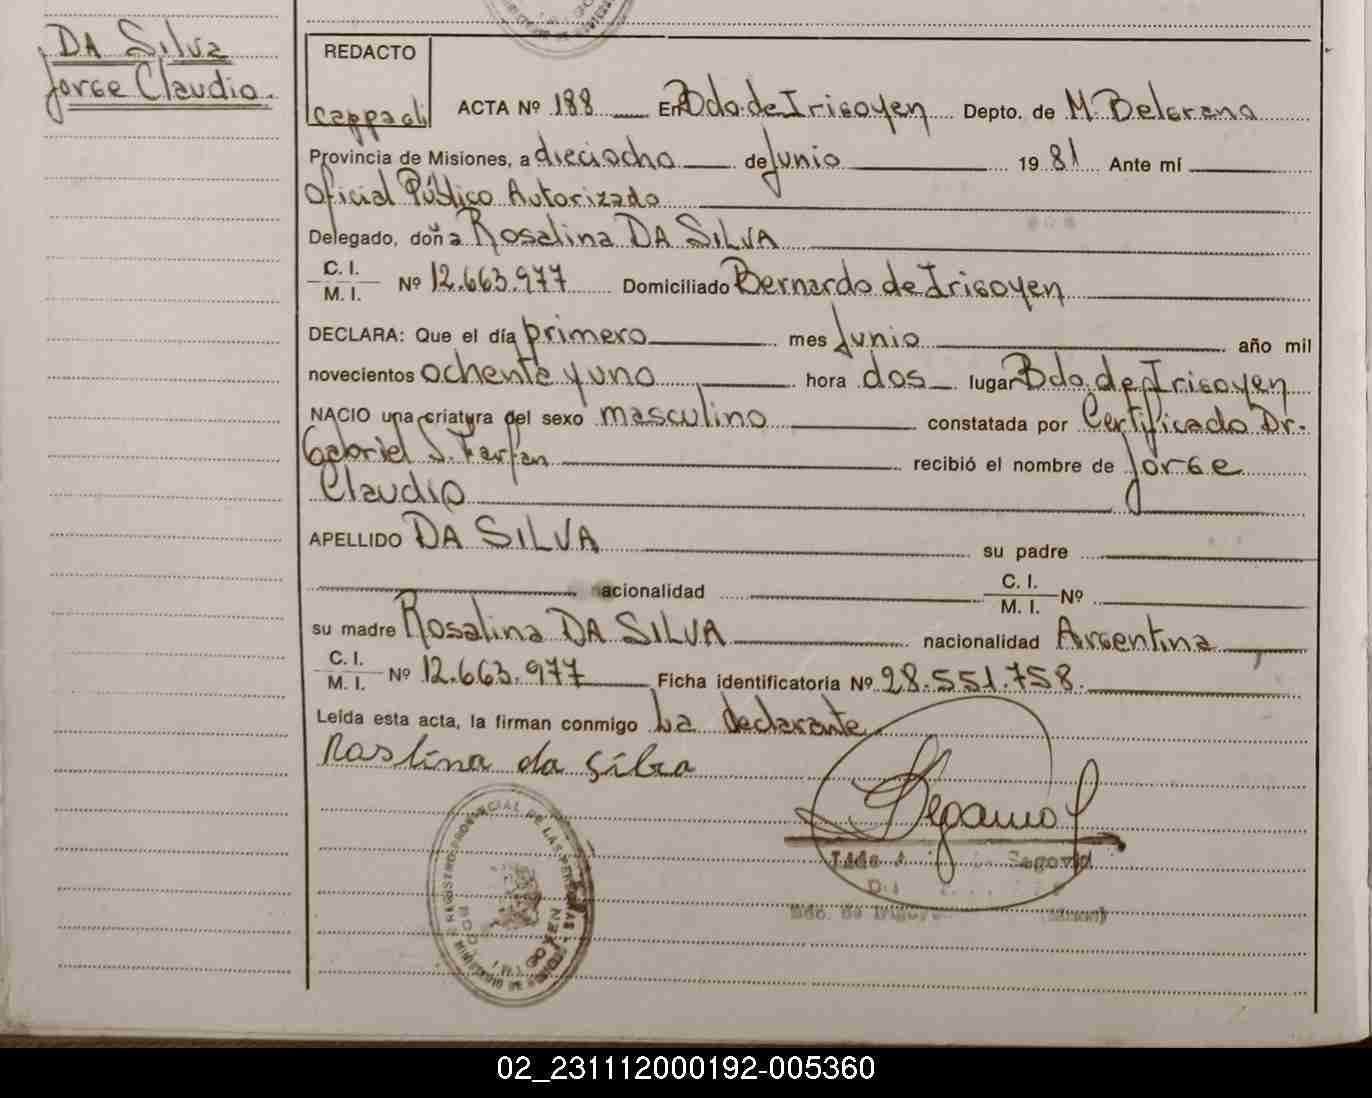 DA Silva
Jorge Claudio.
REDACTO
ACTA Nº 188 En Bdo. de Irigoyen Depto. de M. Belgrano
Provincia de Misiones, a dieciocho de Junio 1981 Ante mí
Oficial Público Autorizado
Delegado, doña Rosalina DA SILVA
C. I.
M. I. Nº 12.663.977 Domiciliado Bernardo de Irigoyen
DECLARA: Que el día primero mes Junio año mil
novecientos ochenta y uno hora dos lugar Bdo. de Irigoyen
NACIO una criatura del sexo masculino constatada por Certificado Dr.
Gabriel S. Farfan recibió el nombre de Jorge
Claudio
APELLIDO DA SILVA su padre
acionalidad C. I. M. I. Nº
su madre Rosalina DA SILVA nacionalidad Argentina
C. I.
M. I. Nº 12.663.977 Ficha identificatoria Nº 28.551.758.
Leída esta acta, la firman conmigo La declarante
Roslina da Silva
REGISTRO PROVINCIAL DE LAS PERSONAS
Segovia
02_231112000192-005360